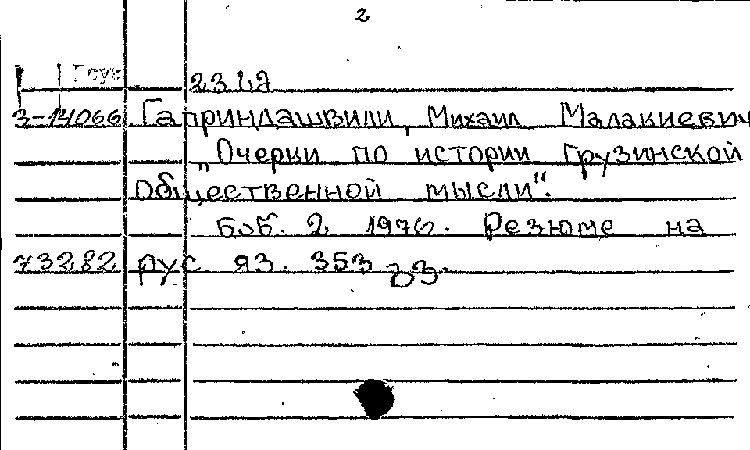 2
Груз
З-14066 Гаприндашвили, Михаил Малакиевич
„Очерки по истории грузинской
общественной мысли".
1976. Резюме на
73282 рус яз. 353 გვ.